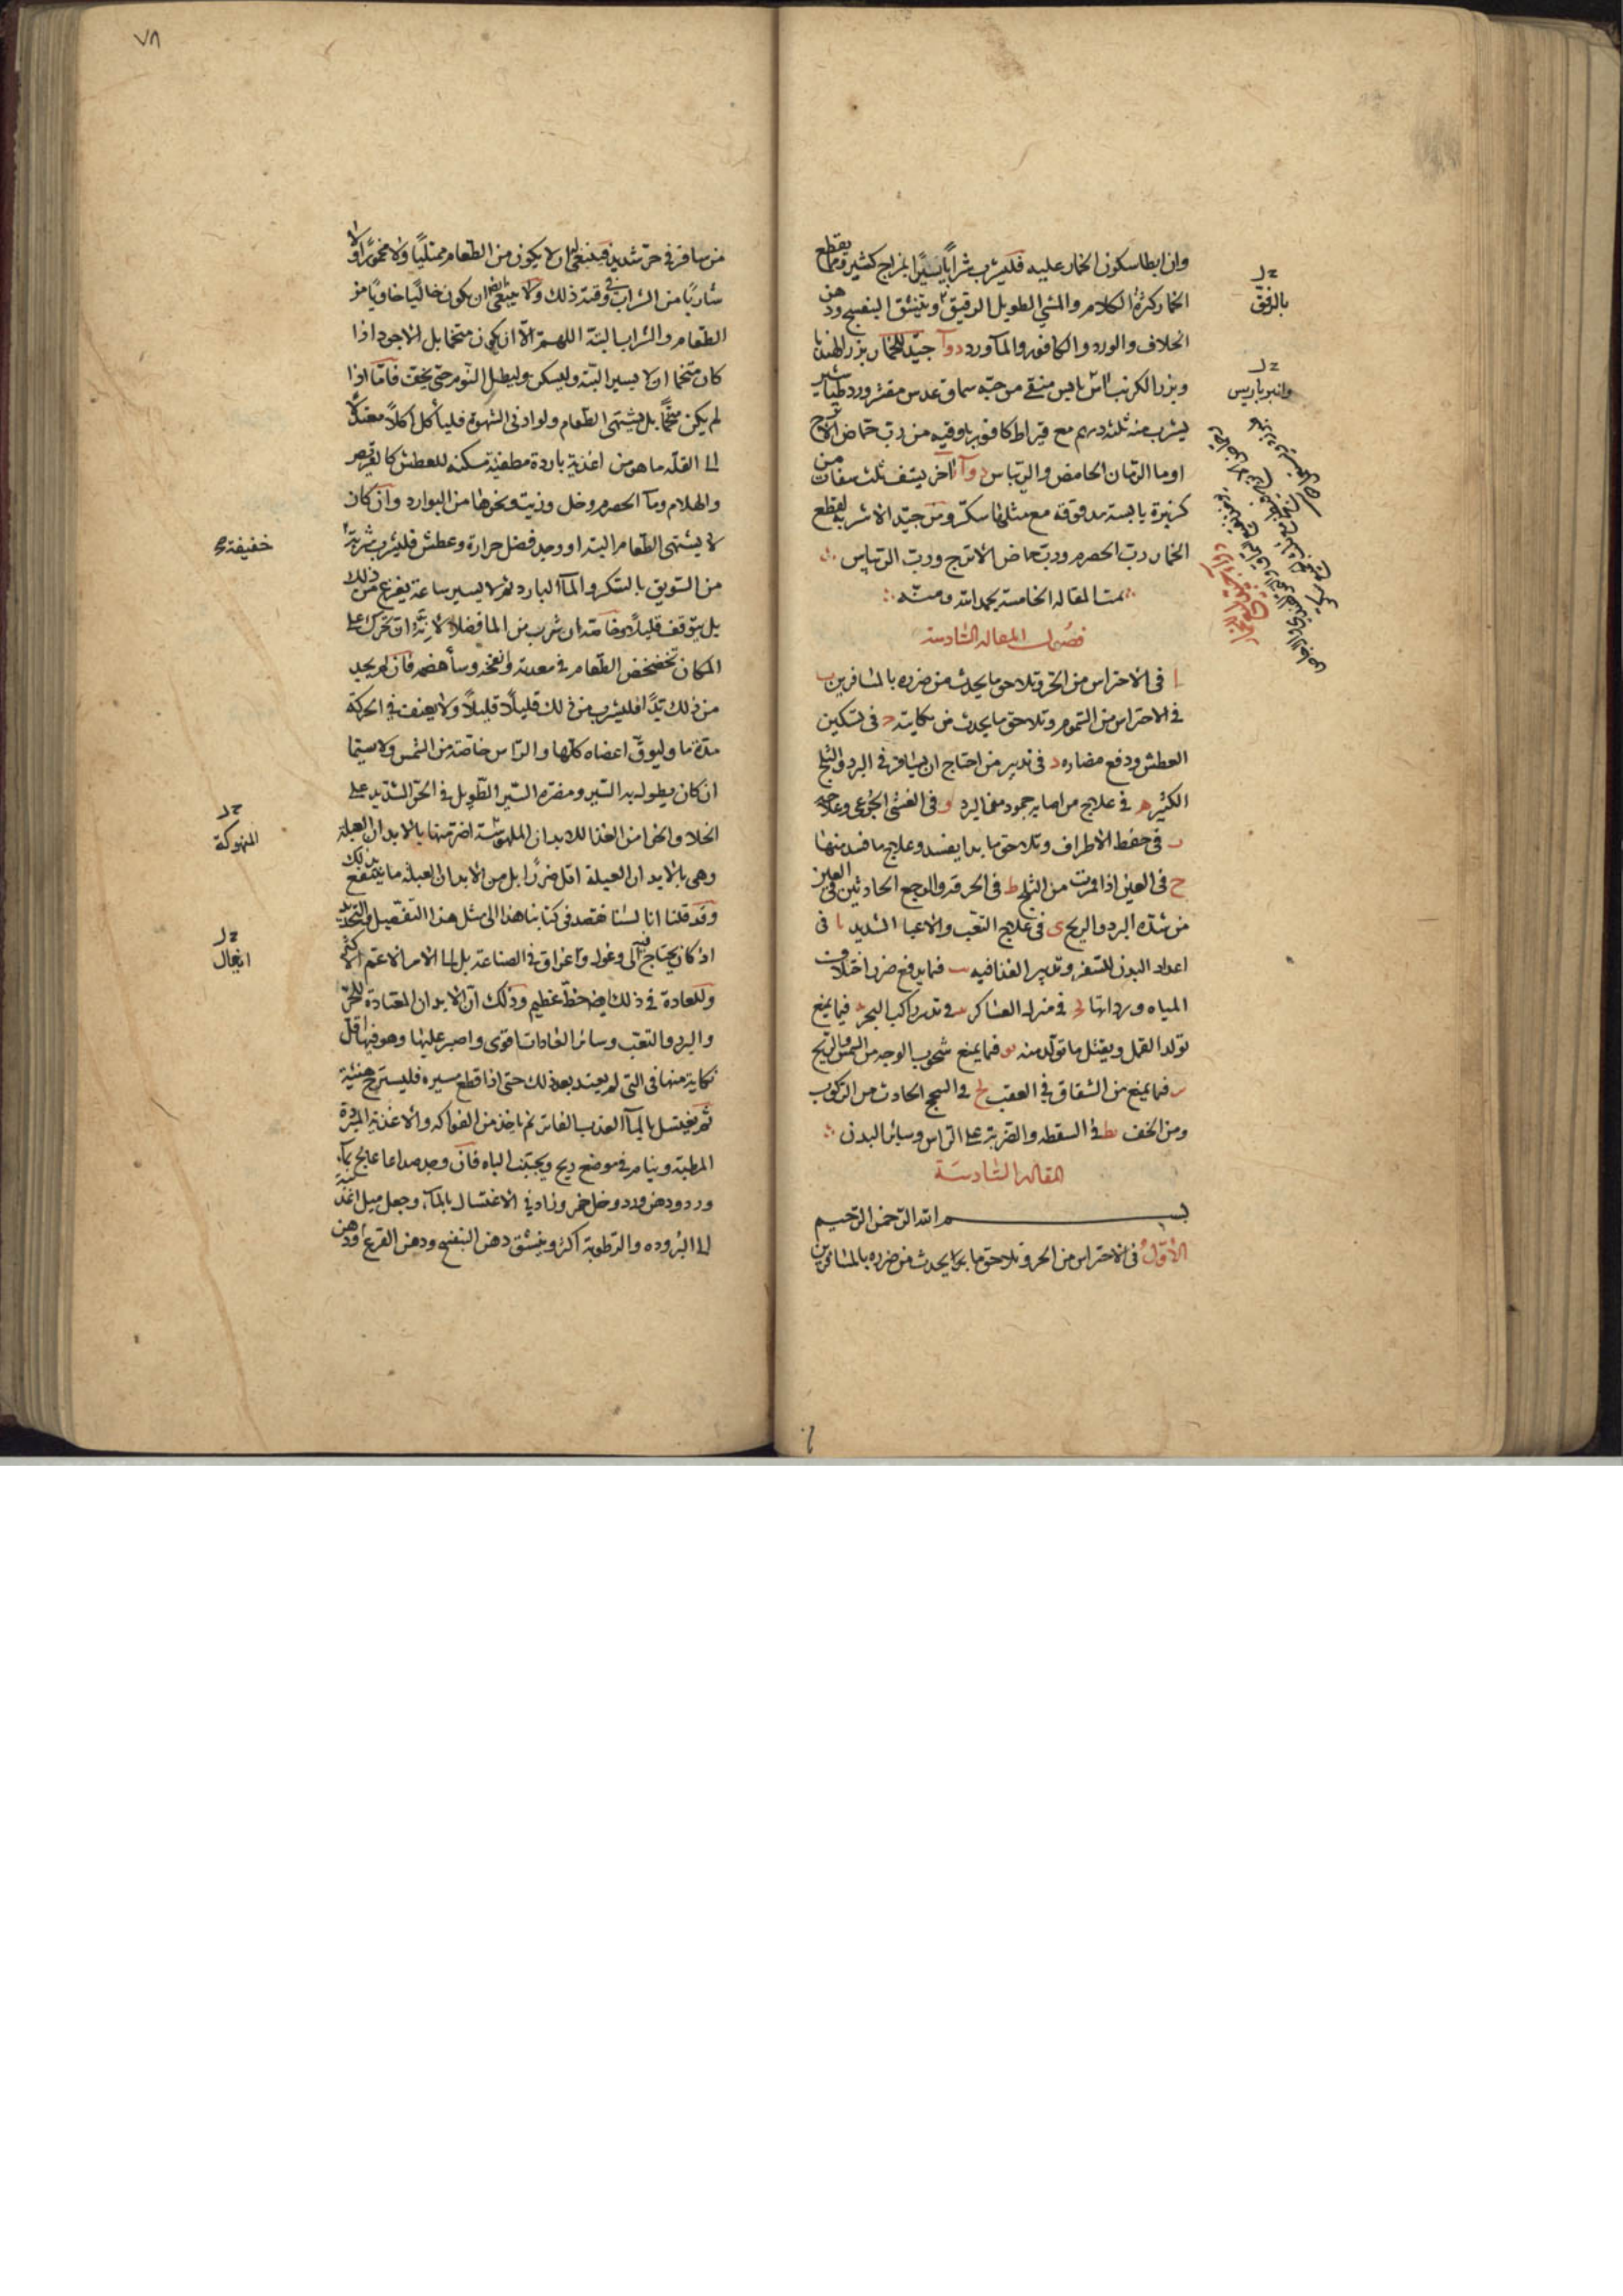 وان ابطا سكون الخمار عليه فليشرب شراباً يسيراً بمزاج كثير ومما يقطع
الخمار كثرة الكلام والمشي الطويل الرقيق وينشق البنفسج ودهن
الخلاف والورد والكافور والماورد دوآ جيّد للخمار بزر الهندبا
وبزر الكرنب امبرباريس منقى من حبه سماق عدس مقشر ورد طباشير
يشرب منه ثلثة دراهم مع قيراط كافور باوقيه من رب حماض الاترج
او ما الرمان الحامض والريباس دوآ اخر يستف ثلث سفات من
كزبرة يابسة مدقوقة مع مثلها سكر ومن جيّد الاشربه لقطع
الخمار رب الحصرم ورب حماض الاترج ورب الريباس
تمت المقاله الخامسة بحمد الله ومنّه
فصول المقاله السادسة
ا في الاحتراس من الحر وتلاحق ما يحدث من ضرره بالمسافرين ب
في الاحتراس من السموم وتلاحق ما يحدث من نكايته ج في تسكين
العطش ودفع مضاره د في تدبير من احتاج ان يسافر في البرد والثلج
الكثير ه في علاج من اصابه جمود من البرد و في الغشي الجوعي وعلاجه
ز في حفظ الاطراف وتلاحق ما بدا يفسد وعلاج ما فسد منها
ح في العين اذا قمرت من الثلج ط في الحرقه والوجع الحادثين في العين
من شدة البرد والريح ى في علاج التعب والاعيا الشديد يا في
اعداد البدن للسفر وتدبير الغذا فيه يب فيما يدفع ضرر اختلاف
المياه ورداتها يج في منزل العساكر يد في تدبير راكب البحر يه فيما يمنع
تولد القمل ويقتل ما تولد منه يو فيما يمنع شحوب الوجه من الشمس والريح
يز فيما يمنع من الشقاق في العقب يح في السحج الحادث من الركوب
ومن الخف يط في السقطه والضربة على الراس وسائر البدن
المقاله السادسة
بسم الله الرحمن الرحيم
الاوّل في الاحتراس من الحر وتلاحق ما يحدث من ضرره بالمسافرين
بالرفق
وانبرباريس
٧٨
من سافر في حر شديد فينبغي له ان لا يكون من الطعام ممتلياً ولا مخموراً ولا
شاربًا من الشراب في وقته ذلك ولا ينبغي ايضا ان يكون خاليًا خاويًا من
الطعام والشراب البتة اللهم الّا ان يكون متخما بل الاجود اذا
كان متخما ان لا يسير البتة وليسكن وليطيل النوم حتى يخف فامّا اذا
لم يكن متخماً بل يشتهى الطعام ولو ادنى الشهوة فلياكل اكلاً معتدلاً
الى القلّه ما هو من اغذية باردة مطفئة مسكنه للعطش كالقريص
والهلام وما الحصرم وخل وزيت ونحوها من البوارد وان كان
لا يشتهى الطعام البتة او وجد فضل حرارة وعطش فليشرب شربة
من السويق بالسكر والمآ البارد ثم لا يسير ساعة يفرغ من ذلك
بل يتوقف قليلاً وخاصة ان شرب من الما فضلاً لانّه ان تحرك على
المكان تخضخض الطعام في معدته وانفخه وسآ هضمه فان لم يجد
من ذلك بدّا فليشرب من ذلك قليلاً قليلاً ولا يعنف في الحركة
مدة ما وليوقّ اعضاه كلّها والراس خاصّة من الشمس ولا سيّما
ان كان يطول به السير ومضرة السّير الطّويل في الحرّ الشديد على
الخلا والخوا من الغذا للابدان الملهوسة اضر منها بالابدان العبلة
وهي بالابدان العبلة اقل ضررًا بل من الابدان العبلة ما ينتفع بذلك
وقد قلنا انا لسنا نقصد في كتابنا هذا الى مثل هذا التفصيل والتحديد
اذ كان يحتاج فيه الى وغول واغراق في الصناعة بل الى الامر الاعم الاكثر
وللعادة في ذلك ايضا حظ عظيم وذلك ان الابدان المعتادة للحر
والبرد والتعب وسائر العادات اقوى واصبر عليها وهو فيها اقل
نكاية منها في التى لم يعتد بعد ذلك حتى اذا قطع مسيره فليستريح هنيئة
ثم يغتسل بالمآ العذب الفاتر ثم ياخذ من الفواكه والاغذية المبردة
المطبة وينام في موضع ريح ويجتنب الباه فان وجد صداعا عالج بمآ
ورد ودهن ورد وخل خمر وزاد في الاغتسال بالمآ وجعل ميل اغذيته
الى البروده والرطوبة اكثر وينشق دهن البنفسج ودهن القرع ودهن
خفيفة
المنهوكة
ايغال